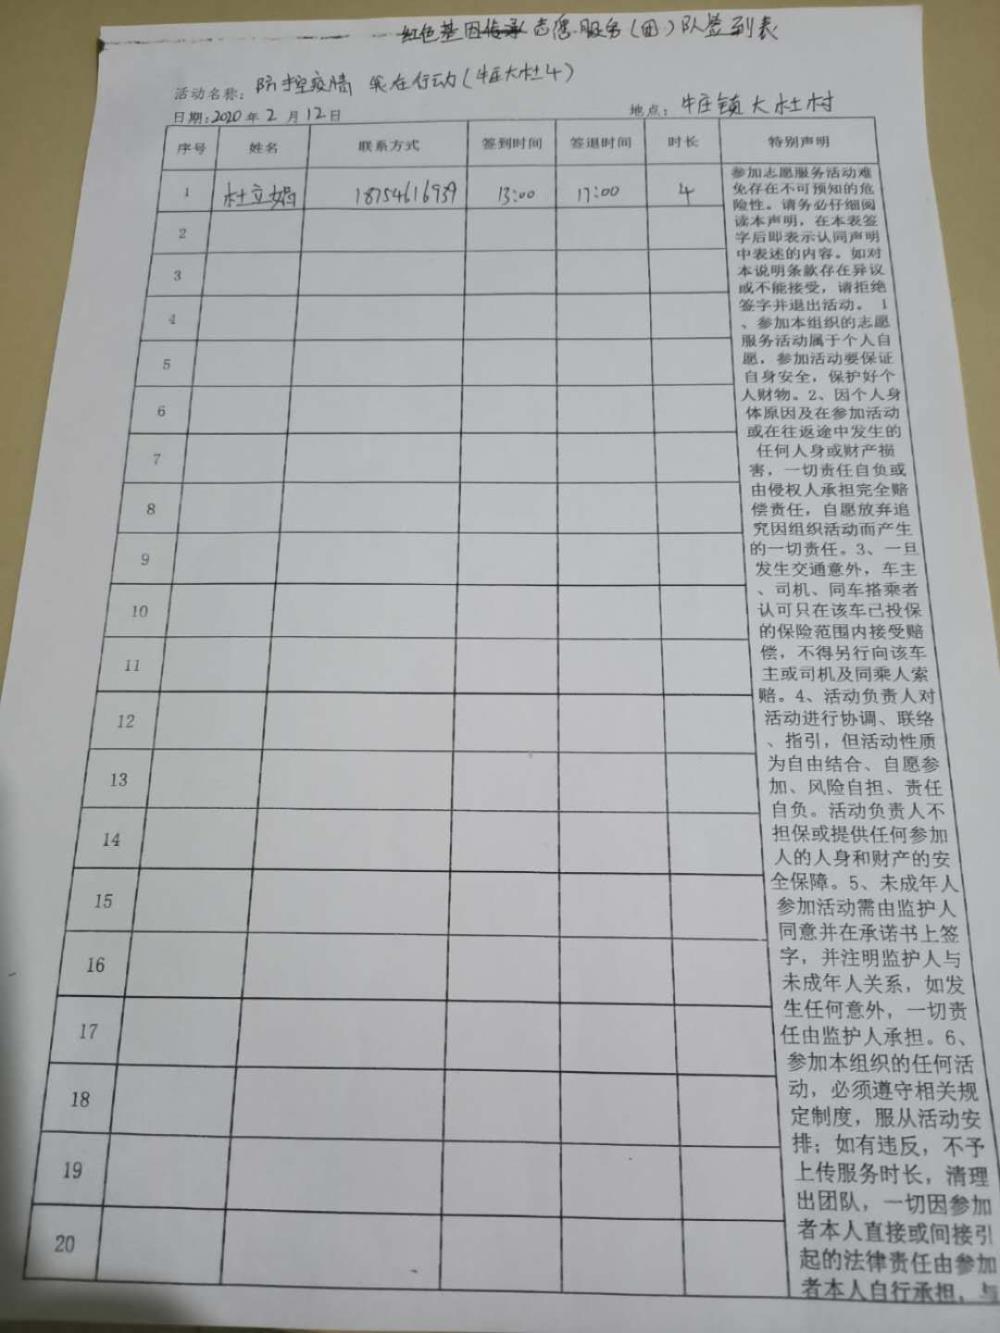 红色基因传承志愿服务(团)队签到表
活动名称: 防控疫情 我在行动(牛庄大杜4)
日期:2020年2月12日 地点: 牛庄镇大杜村
序号 姓名 联系方式 签到时间 签退时间 时长 特别声明
1 杜立娟 18754616939 13:00 17:00 4
2
3
4
5
6
7
8
9
10
11
12
13
14
15
16
17
18
19
20
参加志愿服务活动难
免存在不可预知的危
险性。请务必仔细阅
读本声明,在本表签
字后即表示认同声明
中表述的内容。如对
本说明条款存在异议
或不能接受,请拒绝
签字并退出活动。 1
、参加本组织的志愿
服务活动属于个人自
愿,参加活动要保证
自身安全,保护好个
人财物。2、因个人身
体原因及在参加活动
或在往返途中发生的
任何人身或财产损
害,一切责任自负或
由侵权人承担完全赔
偿责任,自愿放弃追
究因组织活动而产生
的一切责任。3、一旦
发生交通意外,车主
、司机、同车搭乘者
认可只在该车已投保
的保险范围内接受赔
偿,不得另行向该车
主或司机及同乘人索
赔。4、活动负责人对
活动进行协调、联络
、指引,但活动性质
为自由结合、自愿参
加、风险自担、责任
自负。活动负责人不
担保或提供任何参加
人的人身和财产的安
全保障。5、未成年人
参加活动需由监护人
同意并在承诺书上签
字,并注明监护人与
未成年人关系,如发
生任何意外,一切责
任由监护人承担。6、
参加本组织的任何活
动,必须遵守相关规
定制度,服从活动安
排;如有违反,不予
上传服务时长,清理
出团队,一切因参加
者本人直接或间接引
起的法律责任由参加
者本人自行承担,与